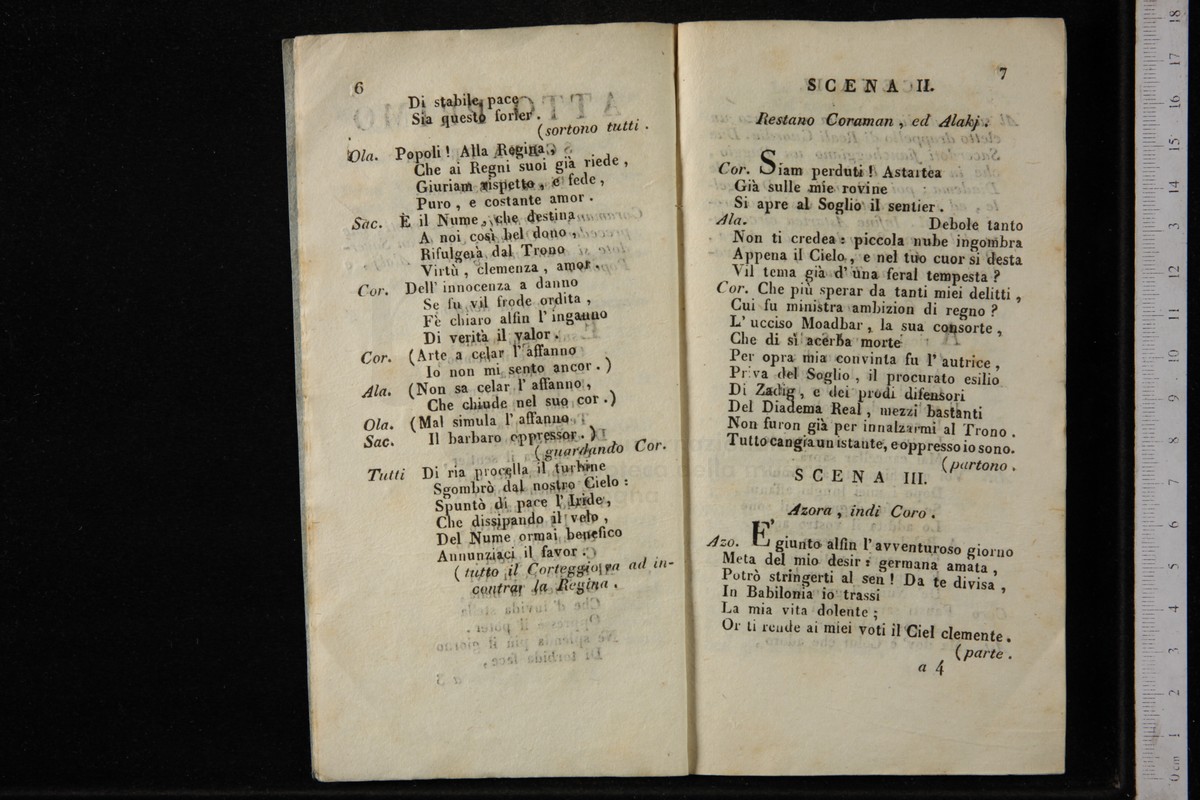 6
Di stabile pace
Sia questo forier.
(sortono tutti.
Ola. Popoli! Alla Regina,
Che ai Regni suoi già riede,
Giuriam rispetto, e fede,
Puro, e costante amor.
Sac. È il Nume, che destina
A noi così bel dono,
Rifulgerà dal Trono
Virtù, clemenza, amor.
Cor. Dell' innocenza a danno
Se fu vil frode ordita,
Fè chiaro alfin l' inganno
Di verità il valor.
Cor. (Arte a celar l' affanno
Io non mi sento ancor.)
Ala. (Non sa celar l' affanno,
Che chiude nel suo cor.)
Ola. (Mal simula l' affanno
Sac. Il barbaro oppressor.)
(guardando Cor.
Tutti Di ria procella il turbine
Sgombrò dal nostro Cielo:
Spuntò di pace l' Iride,
Che dissipando il velo,
Del Nume ormai benefico
Annunziaci il favor.
(tutto il Corteggio va ad in-
contrar la Regina.
7
SCENA II.
Restano Coraman, ed Alakj.
Cor. Siam perduti! Astartea
Già sulle mie rovine
Si apre al Soglio il sentier.
Ala. Debole tanto
Non ti credea: piccola nube ingombra
Appena il Cielo, e nel tuo cuor si desta
Vil tema già d' una feral tempesta?
Cor. Che più sperar da tanti miei delitti,
Cui fu ministra ambizion di regno?
L' ucciso Moadbar, la sua consorte,
Che di sì acerba morte
Per opra mia convinta fu l' autrice,
Priva del Soglio, il procurato esilio
Di Zadig, e dei prodi difensori
Del Diadema Real, mezzi bastanti
Non furon già per innalzarmi al Trono.
Tutto cangia un istante, e oppresso io sono.
(partono.
SCENA III.
Azora, indi Coro.
Azo. E' giunto alfin l' avventuroso giorno
Meta del mio desir: germana amata,
Potrò stringerti al sen! Da te divisa,
In Babilonia io trassi
La mia vita dolente;
Or ti rende ai miei voti il Ciel clemente.
(parte.
a 4